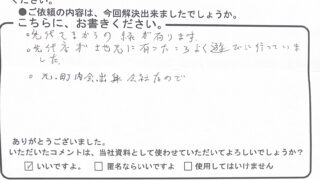 ください。
●ご依頼の内容は、今回解決出来ましたでしょうか。
こちらに、お書きください。
。先代さまからの 縁が有ります.
。先代 が 地元に 有ったころよく遊びに行っていま
した.
。元.町内会出身 会社なので
ありがとうございました。
いただいたコメントは、当社資料として使わせていただいてよろしいでしょうか?
☑ いいですよ。 □ 匿名ならいいですよ □ 使用してはいけません